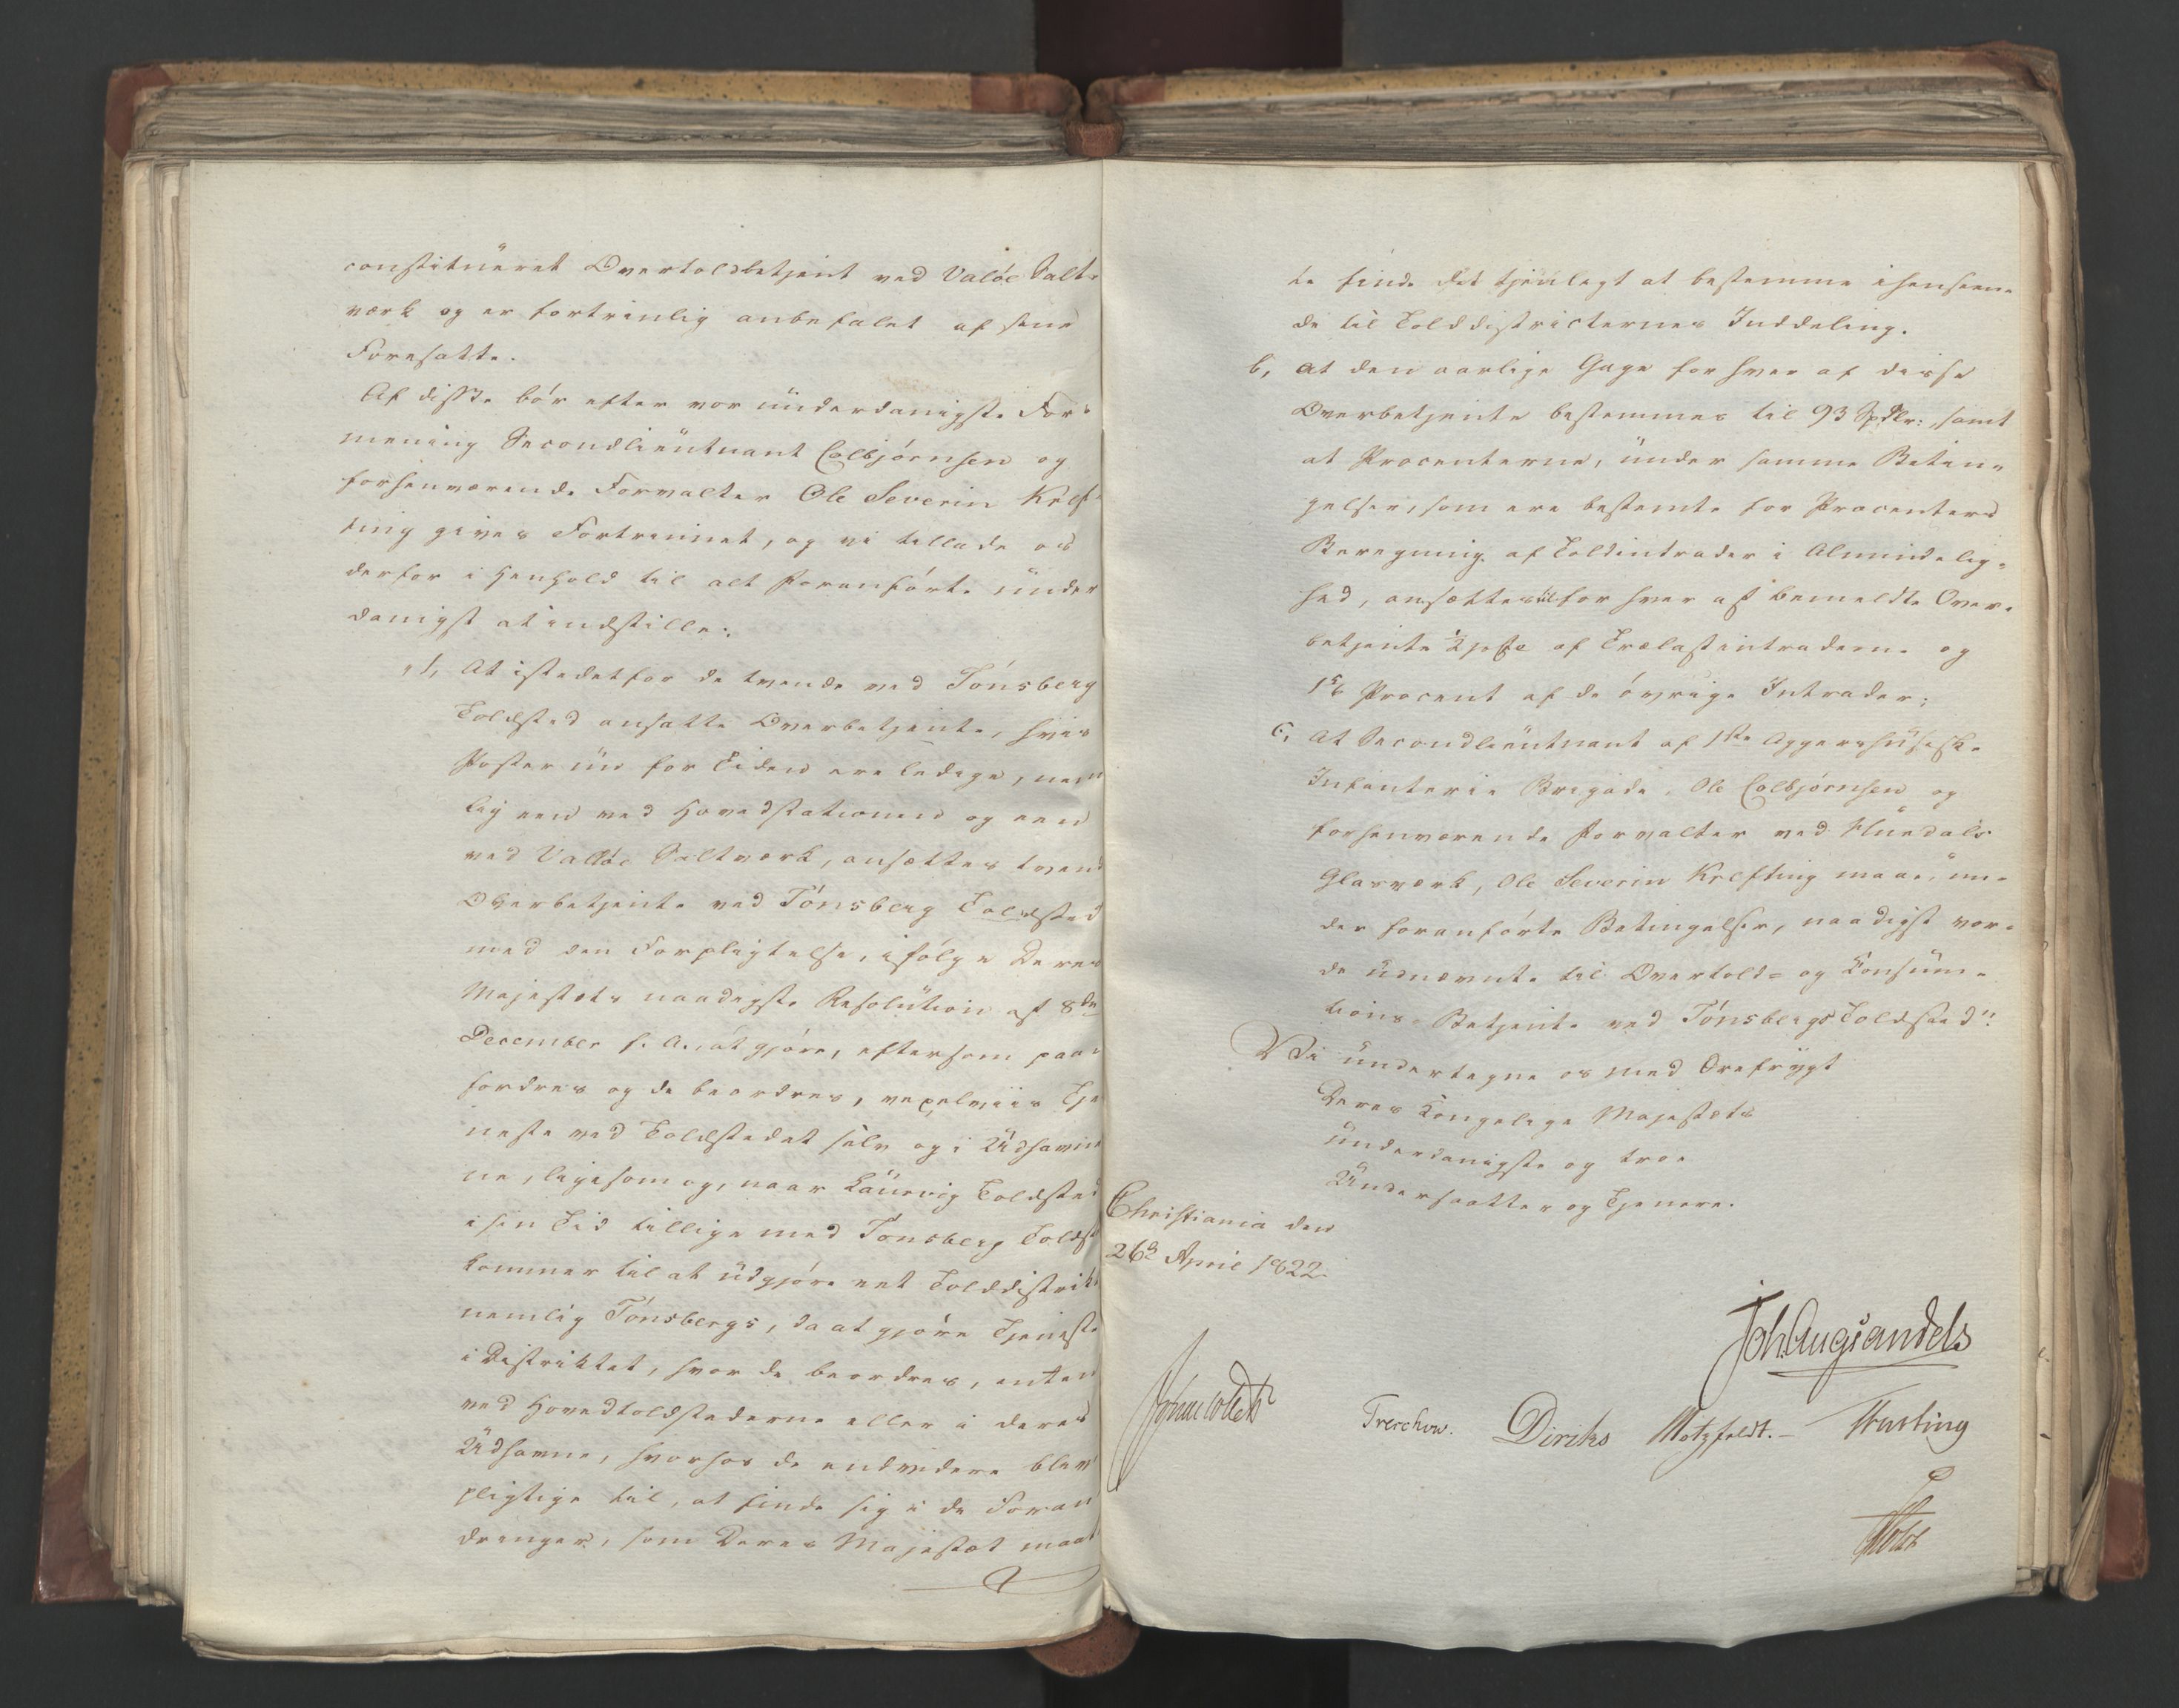 constitueret Overtoldbetjent ved Valøe Salt-
værk og er fortrinlig anbefalet af sine
Foresatte.
Af disse bør efter vor underdanigste For-
mening Secondlieutnant Colbjørnsen og
forhenværende Forvalter Ole Severin Kref-
ting gives Fortrinnet, og vi tillade os
derfor i Henhold til alt foranførte under
danigst at indstille:
"1, At istedetfor de tvende ved Tønsberg
Toldsted ansatte Overbetjente, hvis
Poster nu for Tiden ere ledige, nem
lig een ved Hovedstationen og een
ved Valløe Saltværk, ansættes tvend
Overbetjente ved Tønsberg Toldsted
med den Forpligtelse, ifølge Deres
Majestæts naadigste Resolution af 8de
December f. A., at gjøre, eftersom paa-
fordres og de beordres, vexelviis Tje
neste ved Toldstedet selv og i Udhavne
ne, ligesom og, naar Laurvig Toldsted
i sin Tid tillige med Tønsberg Toldst
kommer til at udgjøre eet Tolddistrikt
nemlig Tønsbergs, da at gjøre Tjeneste
i Distriktet, hvor de beordres, enten
ved Hovedtoldstederne eller i deres
Udhavne, hvorhos de endvidere blev
pligtige til, at finde sig i de Foran
dringer, som Deres Majestæt maat
te finde det tjenligt at bestemme i henseen-
de til Tolddistricternes Inddeling.
b, at den aarlige Gage for hver af disse
Overbetjente bestemmes til 93 Spdlr:, samt
at Procenterne, under samme Betin-
gelser, som ere bestemte for Procenters
Beregning af Toldintrader i Almindelig-
hed, ansættes til for hver af bemeldte Over-
betjente ½ pCt af Trælastintraderne og
1 5/6 Procent af de øvrige Intrader;
c, At Secondlieutnant af 1ste Aggershusiske
Infanterie Brigade, Ole Colbjørnsen og
forhenværende Forvalter ved Hurdals
Glasværk, Ole Severin Krefting maae, un-
der foranførte Betingelser, naadigst vor-
de udnævnte til Overtold- og Konsum-
tions-Betjente ved Tønsbergs Toldsted".
Vi undertegne os med Ærefrygt
Deres Kongelige Majestæts
underdanigste og troe
Undersaatter og Tjenere.
Christiania den
26d April 1822.
Joh. Aug Sandels
Jonas Collett
Treschow.
Diriks
Motzfeldt.
Fasting
Holst